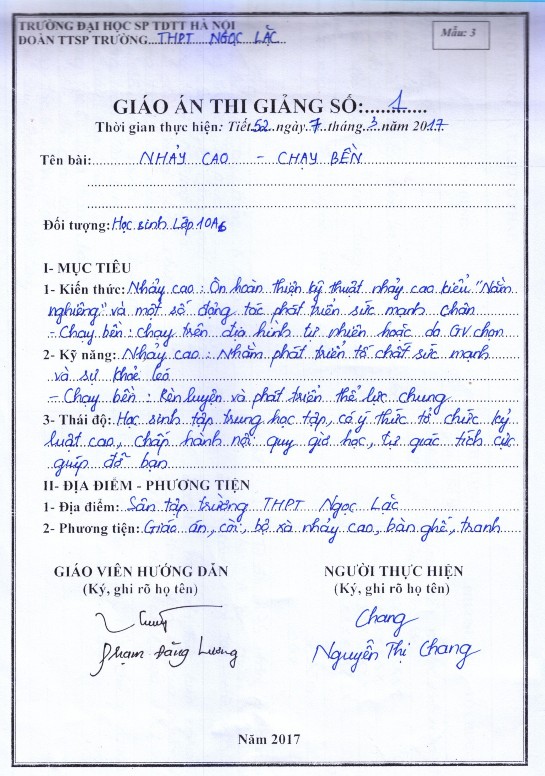 TRƯỜNG ĐẠI HỌC SP TDTT HÀ NỘI
ĐOÀN TTSP TRƯỜNG THPT NGỌC LẶC
Mẫu: 3
GIÁO ÁN THI GIẢNG SỐ: 1
Thời gian thực hiện: Tiết 52 ngày 7 tháng 3 năm 2017
Tên bài: NHẢY CAO - CHẠY BỀN
Đối tượng: Học sinh Lớp 10A6
I- MỤC TIÊU
1- Kiến thức: Nhảy cao: Ôn hoàn thiện kỹ thuật nhảy cao kiểu "Nằm
nghiêng" và một số động tác phát triển sức mạnh chân
- Chạy bền: Chạy trên địa hình tự nhiên hoặc do GV chọn
2- Kỹ năng: Nhảy cao: Nhằm phát triển tố chất sức mạnh
và sự khoẻ léo
- Chạy bền: Rèn luyện và phát triển thể lực chung
3- Thái độ: Học sinh tập trung học tập, có ý thức tổ chức kỷ
luật cao, chấp hành nội quy giờ học, tự giác tích cực
giúp đỡ bạn
II- ĐỊA ĐIỂM - PHƯƠNG TIỆN
1- Địa điểm: Sân tập trường THPT Ngọc Lặc
2- Phương tiện: Giáo án, còi, bộ xà nhảy cao, bàn ghế, tranh
GIÁO VIÊN HƯỚNG DẪN
(Ký, ghi rõ họ tên)
Phạm Đăng Lương
NGƯỜI THỰC HIỆN
(Ký, ghi rõ họ tên)
Chang
Nguyễn Thị Chang
Năm 2017